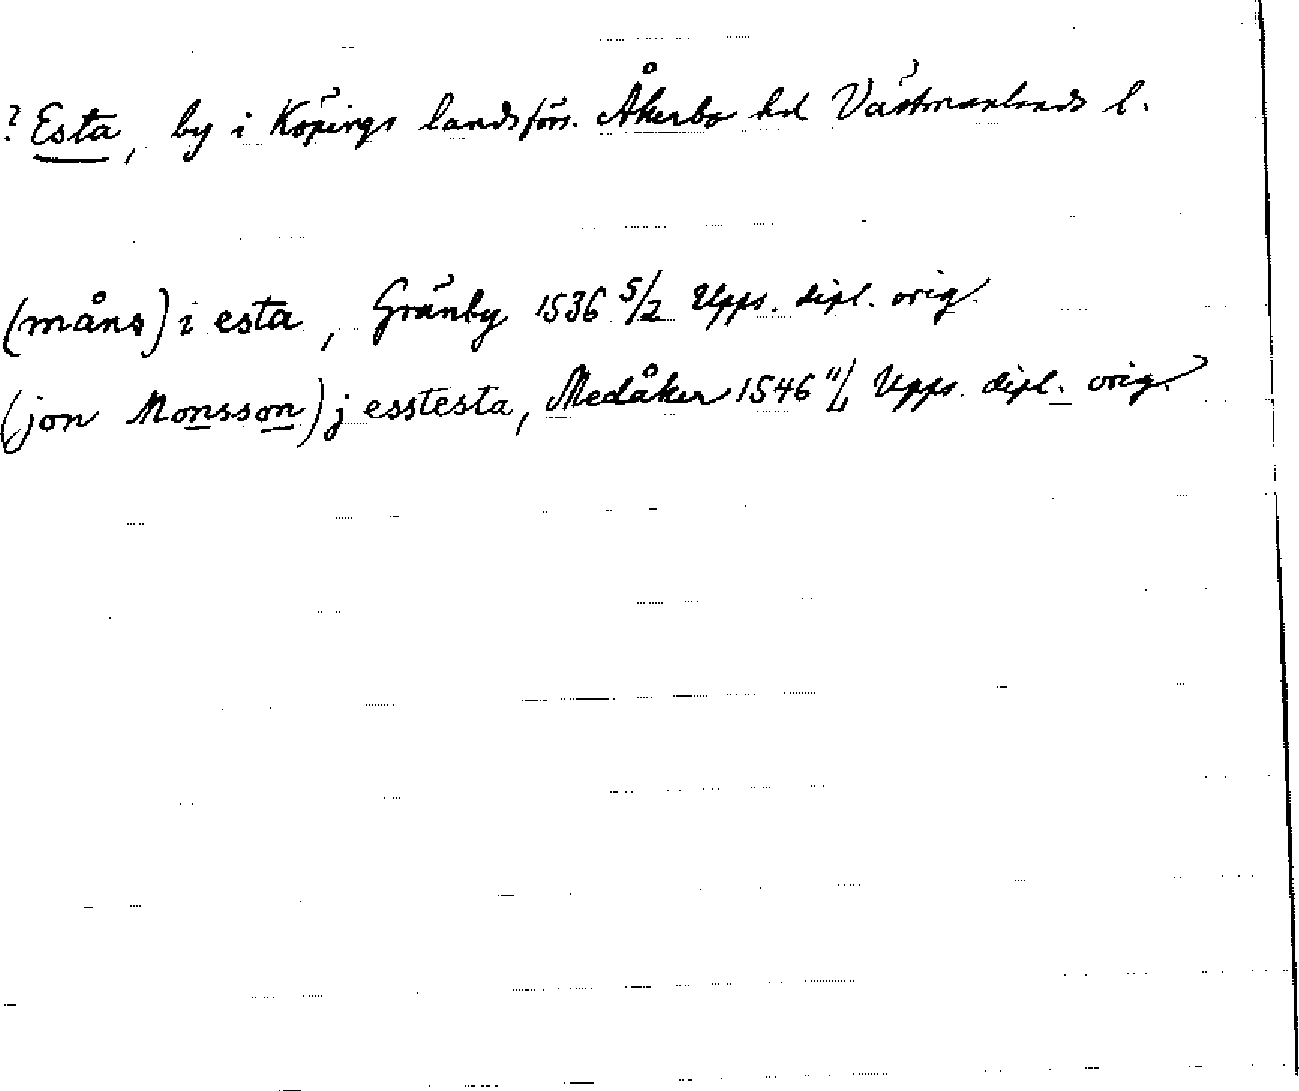 ? Esta, by i Köpings landsförs. Åkerbo hd Västmanlands l.
(måns) i esta, Gränby 1536 5/2 Upps. dipl. orig.
(jon Monsson) j esstesta, Medåker 1546 11/4 Upps. dipl. orig.